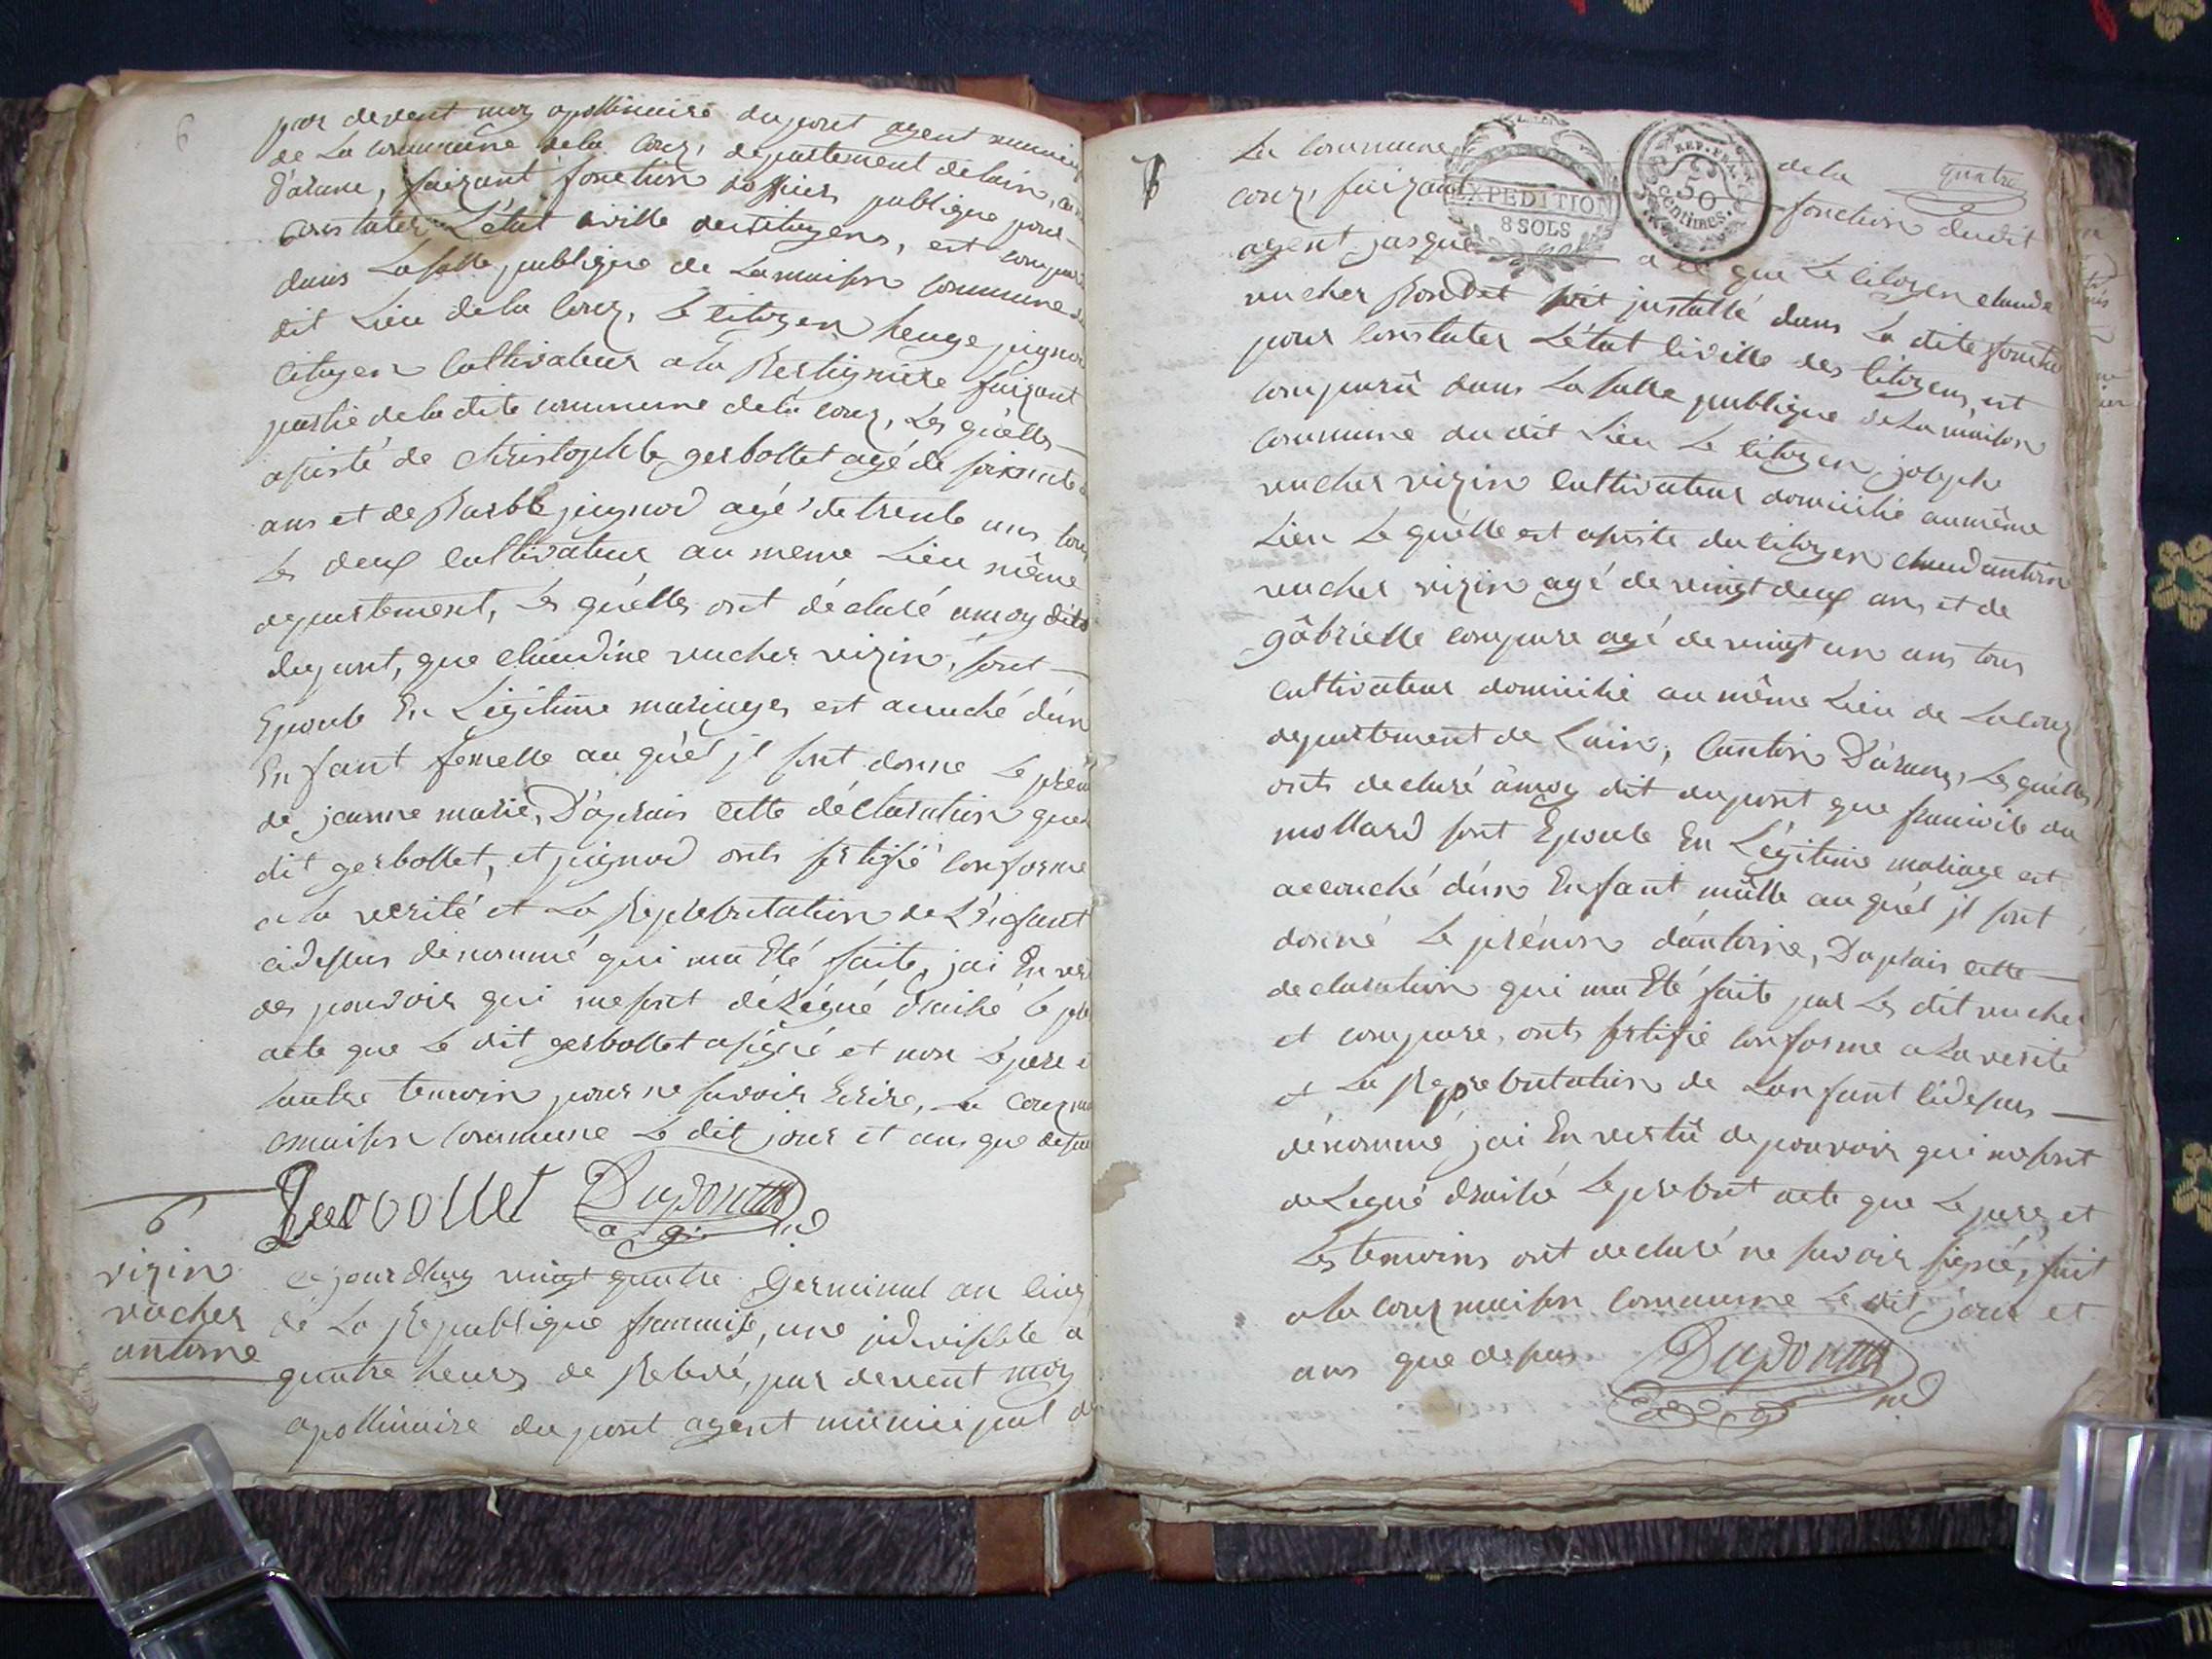 6
par devent moy apollinaire dupont agent
de La commune dela Couz, departement delain,
D'arane, faizant fonction publique pour
constater L'état civille des citoyens, est
dans La salle publique de La maison commune
dit Lieu dela Couz, Le citoyen
citoyen Cultivateur a la faizant
partie de la dite commune dela Couz, Les quelle
asisté de Christophle gerbollet agé de soixante
ans et de juignod agé de trente ans tous
Les deux cultivateur au meme Lieu même
departement, Les quelles ont déclaré amoy dit
dupont, que claudine vucher vizin, sont
Epouse En Légitime mariages est acuché d'un
Enfant femelle au quel jl sont donne Le
de jeanne marie, D'aprais cette déclaration que
dit gerbollet, et juignod onts sertifié conforme
a la verité et La Represetutation de L'enfant
cidesus dénommé qui ma Eté faite, jai En
des pouvoir qui mesont délégué draisé le
acte que Le dit gerbollet asigné et non Le pere
Lautre temoin pour ne savoir Ecrire, La Couz
maison commune Le dit jour et ans que desus
Jerbollet Dupont
6
vizin
vucher
antoine
cejourdhuy vingt quatre Germinal an cinq
de La Republique francaise, une jdivisible a
quatre heurs de Relevé, par devent moy
apollinaire dupont agent municipal de
La commune dela quatre
EXPEDITION
8 SOLS
REP. FRA.
50
Centimes.
Couz, faizant fonction dudit
agent jusque a ce que Le citoyen claude
vucher Rondet soit justallé dans La dite
pour constater L'état civille des citoyens, est
comparû dans La salle publique de La maison
commune du dit Lieu Le citoyen joseph
vucher vizin cultivateur domicilié aumême
Lieu Le quelle est asisté du citoyen claud antoine
vucher vizin agé de vingt deux ans et de
gâbrielle compare agé de vingt un ans tous
cultivateur domicilié au même Lieu de LaCouz
departement de Lain, Canton D'arane, Les quelles
onts declaré âmoy dit dupont que francoise du
mollard sont Epouse En Légitime mariage est
accouché d'un Enfant mâlle au quel jl sont
donné Le prénon d'antoine, Daprais cette
declaration qui ma Eté faite par Les dit vucher
et compare, onts sertifié conforme a La verité
et La Represetutation de Lanfant cidesus
dénommé jai En vertû de pouvoir qui mesont
deLegué draisé Le presetnt acte que Le pere, et
Les temoins ont declaré ne savoir signé, fait
a la Couz maison commune Le dit jour et
ans que desus Dupont